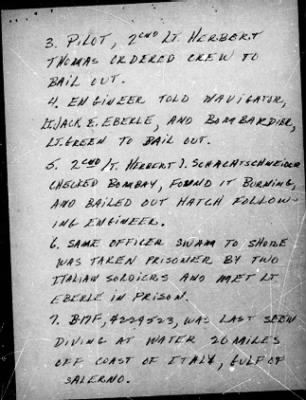 3. PILOT, 2ND LT. HERBERT
THOMAS ORDERED CREW TO
BAIL OUT.
4. ENGINEER TOLD NAVIGATOR,
LT. JACK E. EBERLE, AND BOMBARDIER,
LT. GREEN TO BAIL OUT.
5. 2ND LT. HERBERT J. SCHACHTSCHNEIDER
CHECKED BOMBAY, FOUND IT BURNING,
AND BAILED OUT HATCH FOLLOW-
ING ENGINEER.
6. SAME OFFICER SWAM TO SHORE
WAS TAKEN PRISONER BY TWO
ITALIAN SOLDIERS AND MET LT
EBERLE IN PRISON.
7. B17F, #229523, WAS LAST SEEN
DIVING AT WATER 20 MILES
OFF COAST OF ITALY, GULF OF
SALERNO.